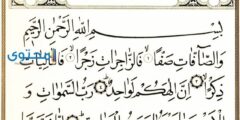 بِسْمِ اللَّهِ الرَّحْمَٰنِ الرَّحِيمِ
وَالصَّافَّاتِ صَفًّا ۝ فَالزَّاجِرَاتِ زَجْرًا ۝ فَالتَّالِيَاتِ
ذِكْرًا ۝ إِنَّ إِلَٰهَكُمْ لَوَاحِدٌ ۝ رَبُّ السَّمَوَاتِ وَ
المحتوى